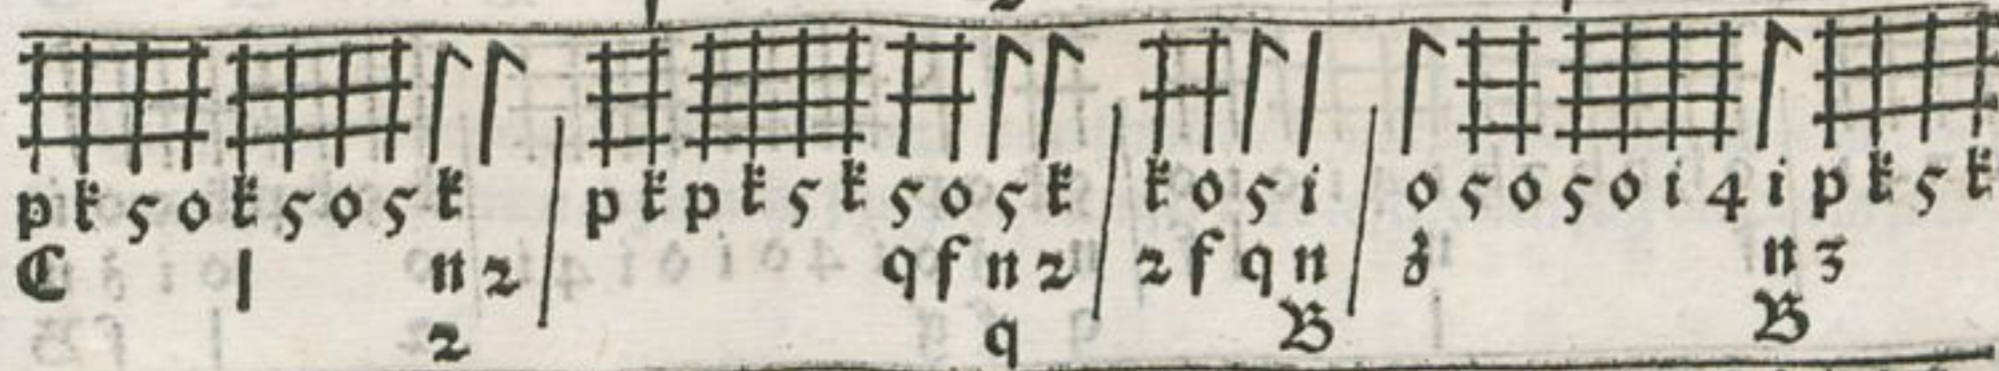 p k 5 o k 5 o 5 k p k p k 5 k 5 o 5 k k o 5 i o 5 o 5 o i 4 i p k 5 k
C l n 2 q f n 2 2 f q n z n 3
2 q B B